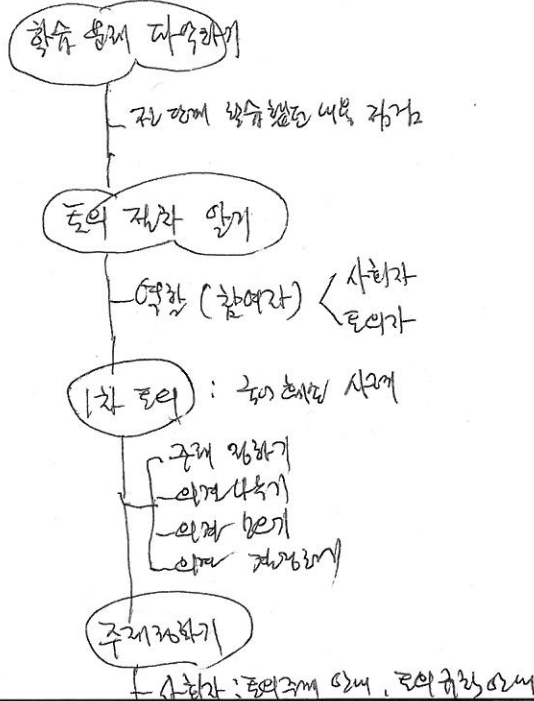 학습 문제 파악하기
전 단계 학습했던 내용 점검
토의 절차 알기
역할 (참여자) < 사회자
토의자
1차 토의 : 국어
주제 정하기
의견 나누기
의견 모으기
의견 결정하기
주제정하기
사회자 : 토의주제 안내, 토의 규칙 안내